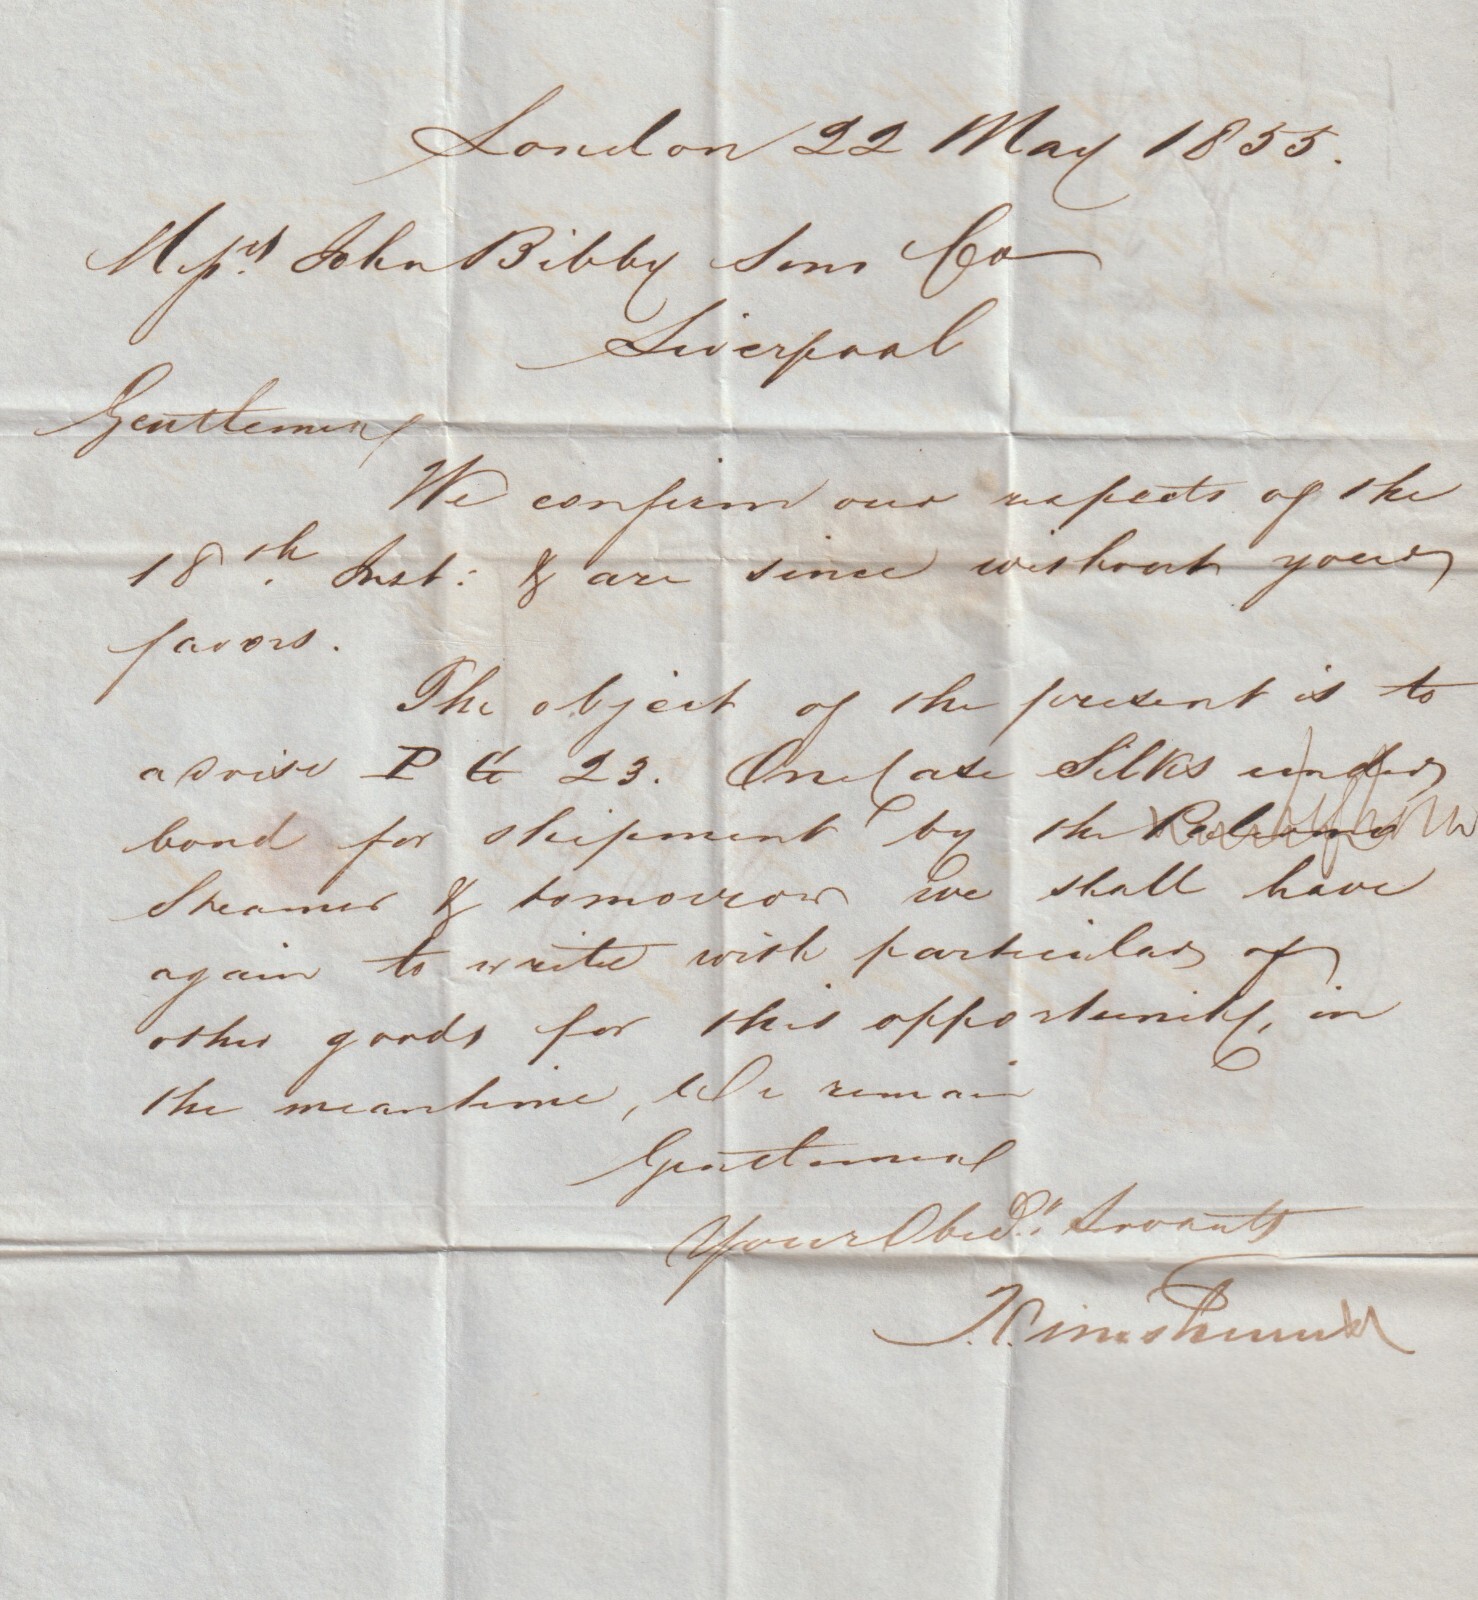 London 22 May 1855.
Messrs. John Bibby Sons Co
Liverpool
Gentlemen
We confirm our respects of the
18th. Inst: & are since without your
favors.
The object of the present is to
advise P 23. One Case Silks under
bond for shipment by the
Steamer & tomorrow we shall have
again to write with particulars of
other goods for this opportunity, in
the meantime, We remain
Gentlemen
Your Obedt. Servants